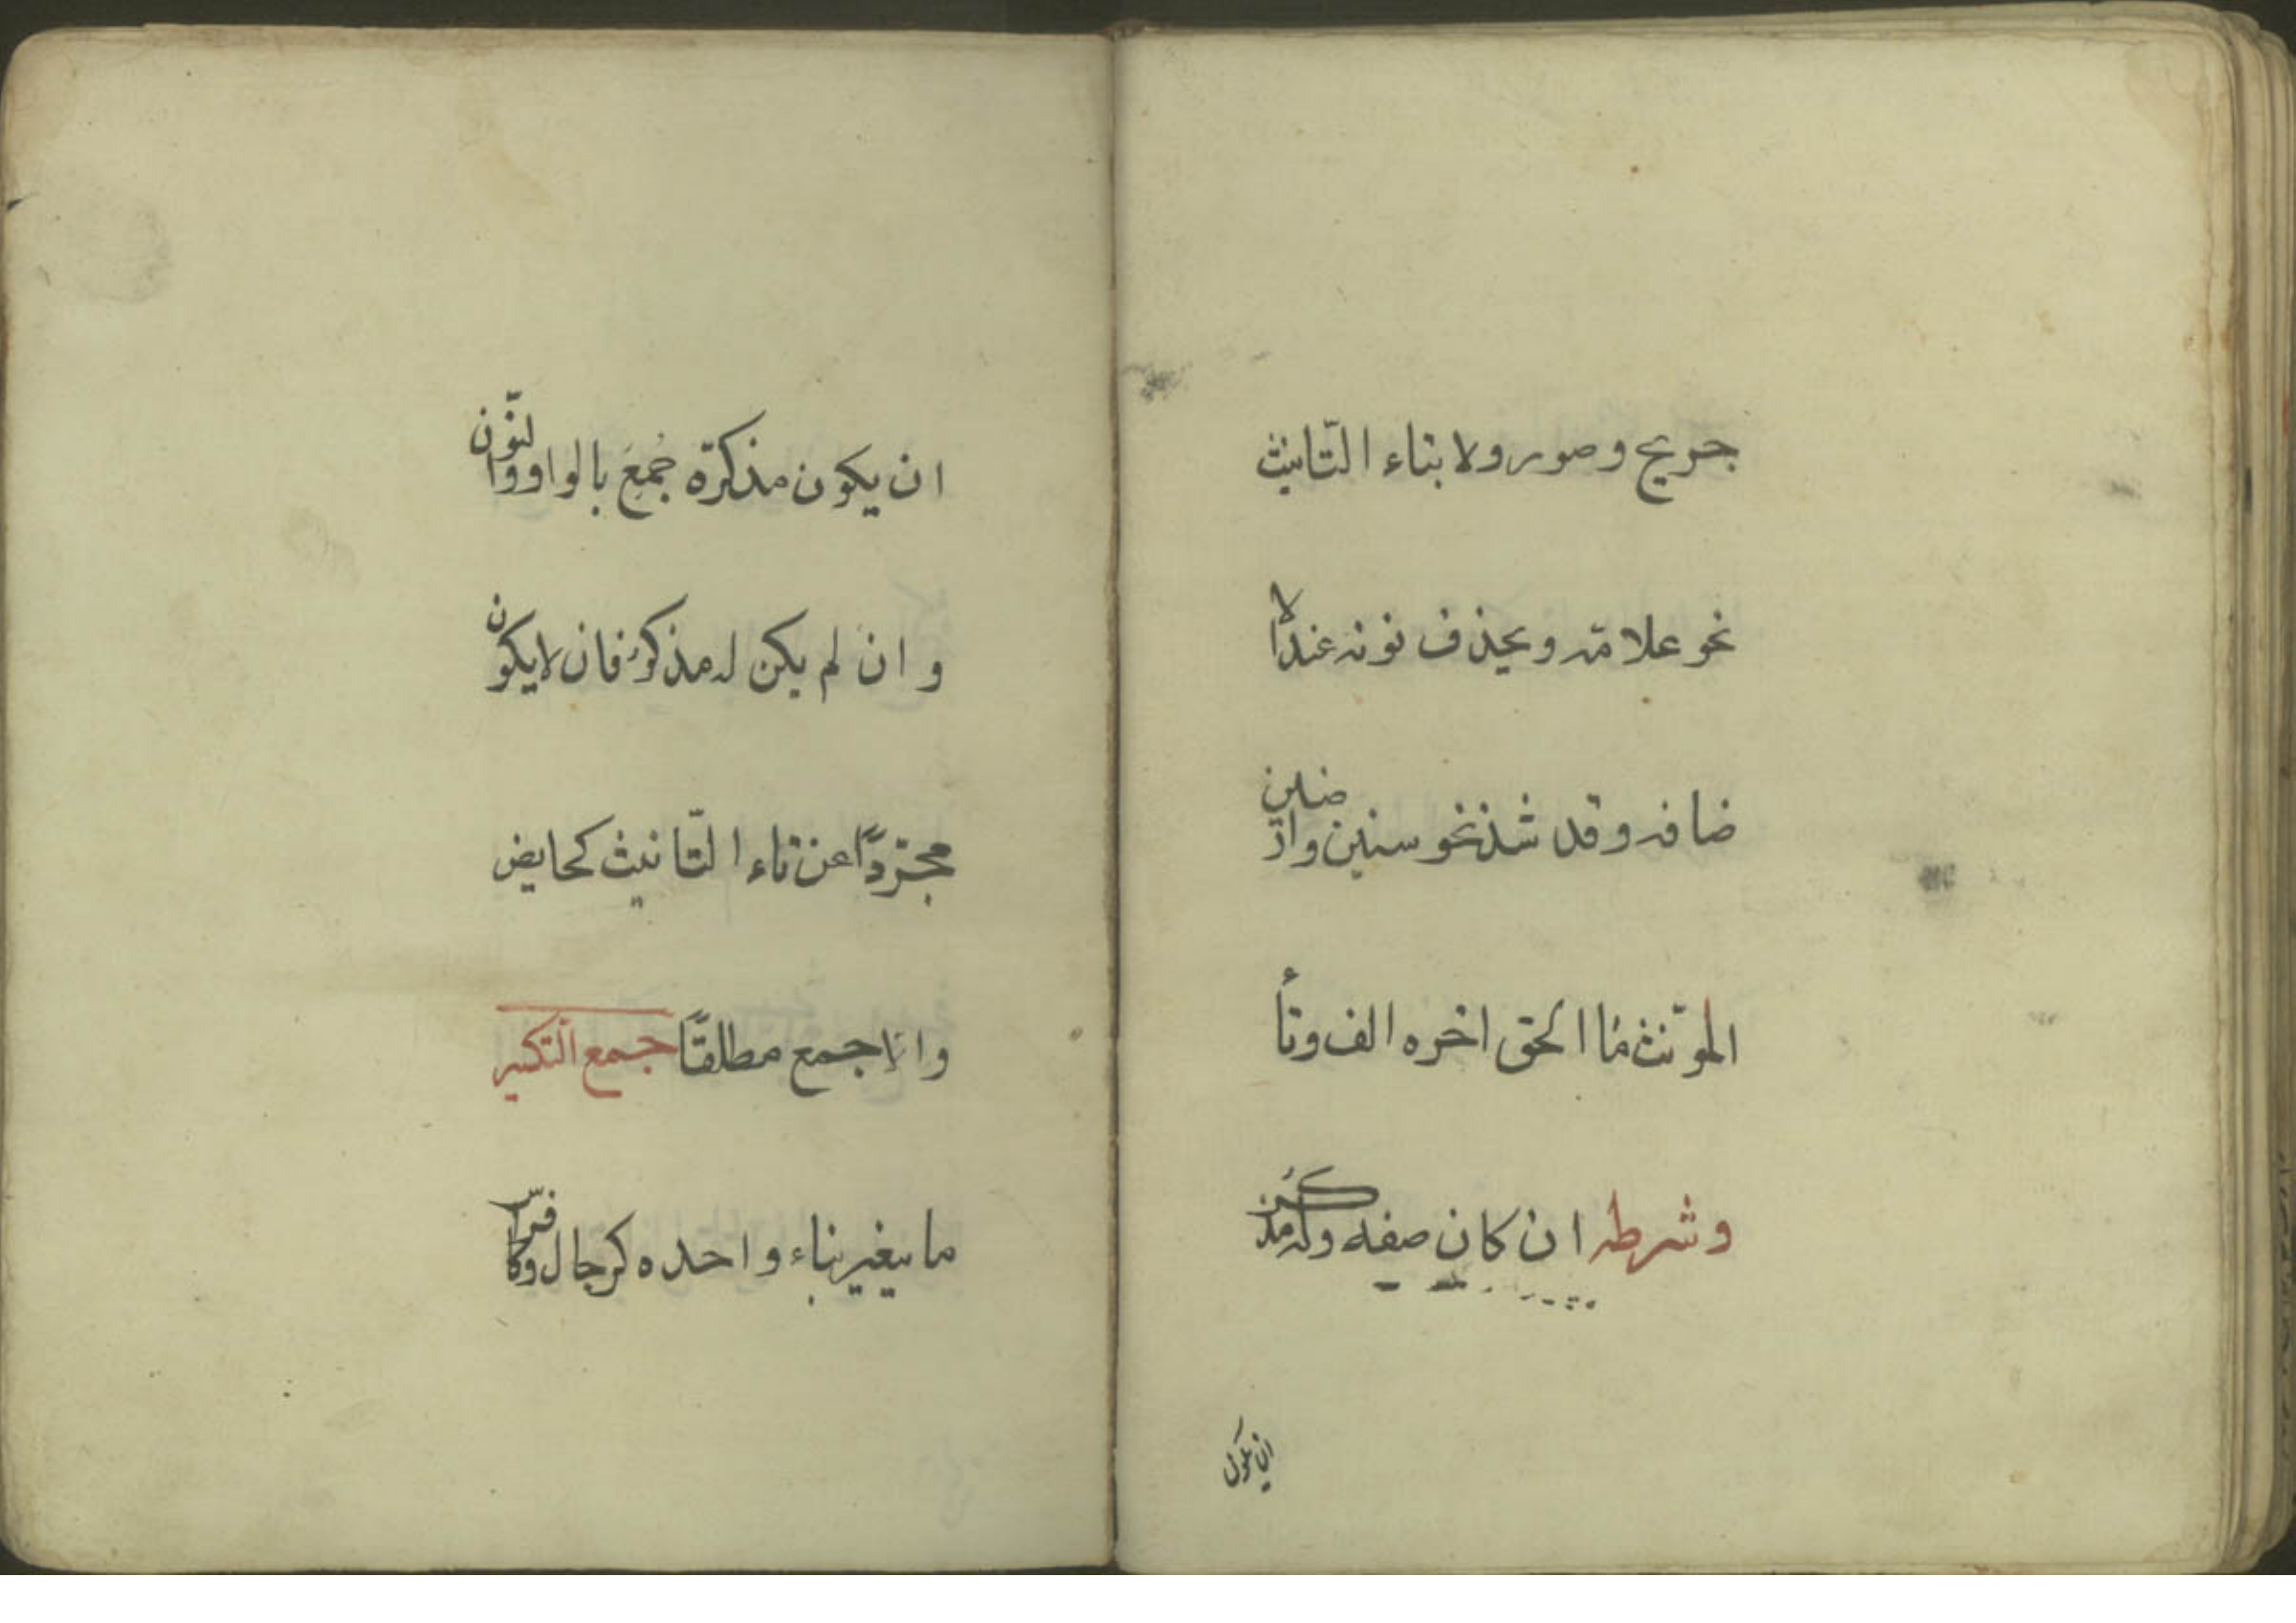 جريح وصور ولا بتاء التّانيث
نحو علامة ويحذف نونه عند الا
ضافه وقد شذ نحو سنين وارضين
الموّنث ما الحق اخره الف وتاء
وشرطه ان كان صفه وله مذكر
ان يكون
ان يكون مذكرّه جُمِعَ بالواو والنّون
وان لم يكن له مذكر فان لا يكون
مجرّدًا عن تاء التّانيث كحايض
والا جمع مطلقًا جمع التّكسير
ما يغير بناء واحده كرجال وكافراس